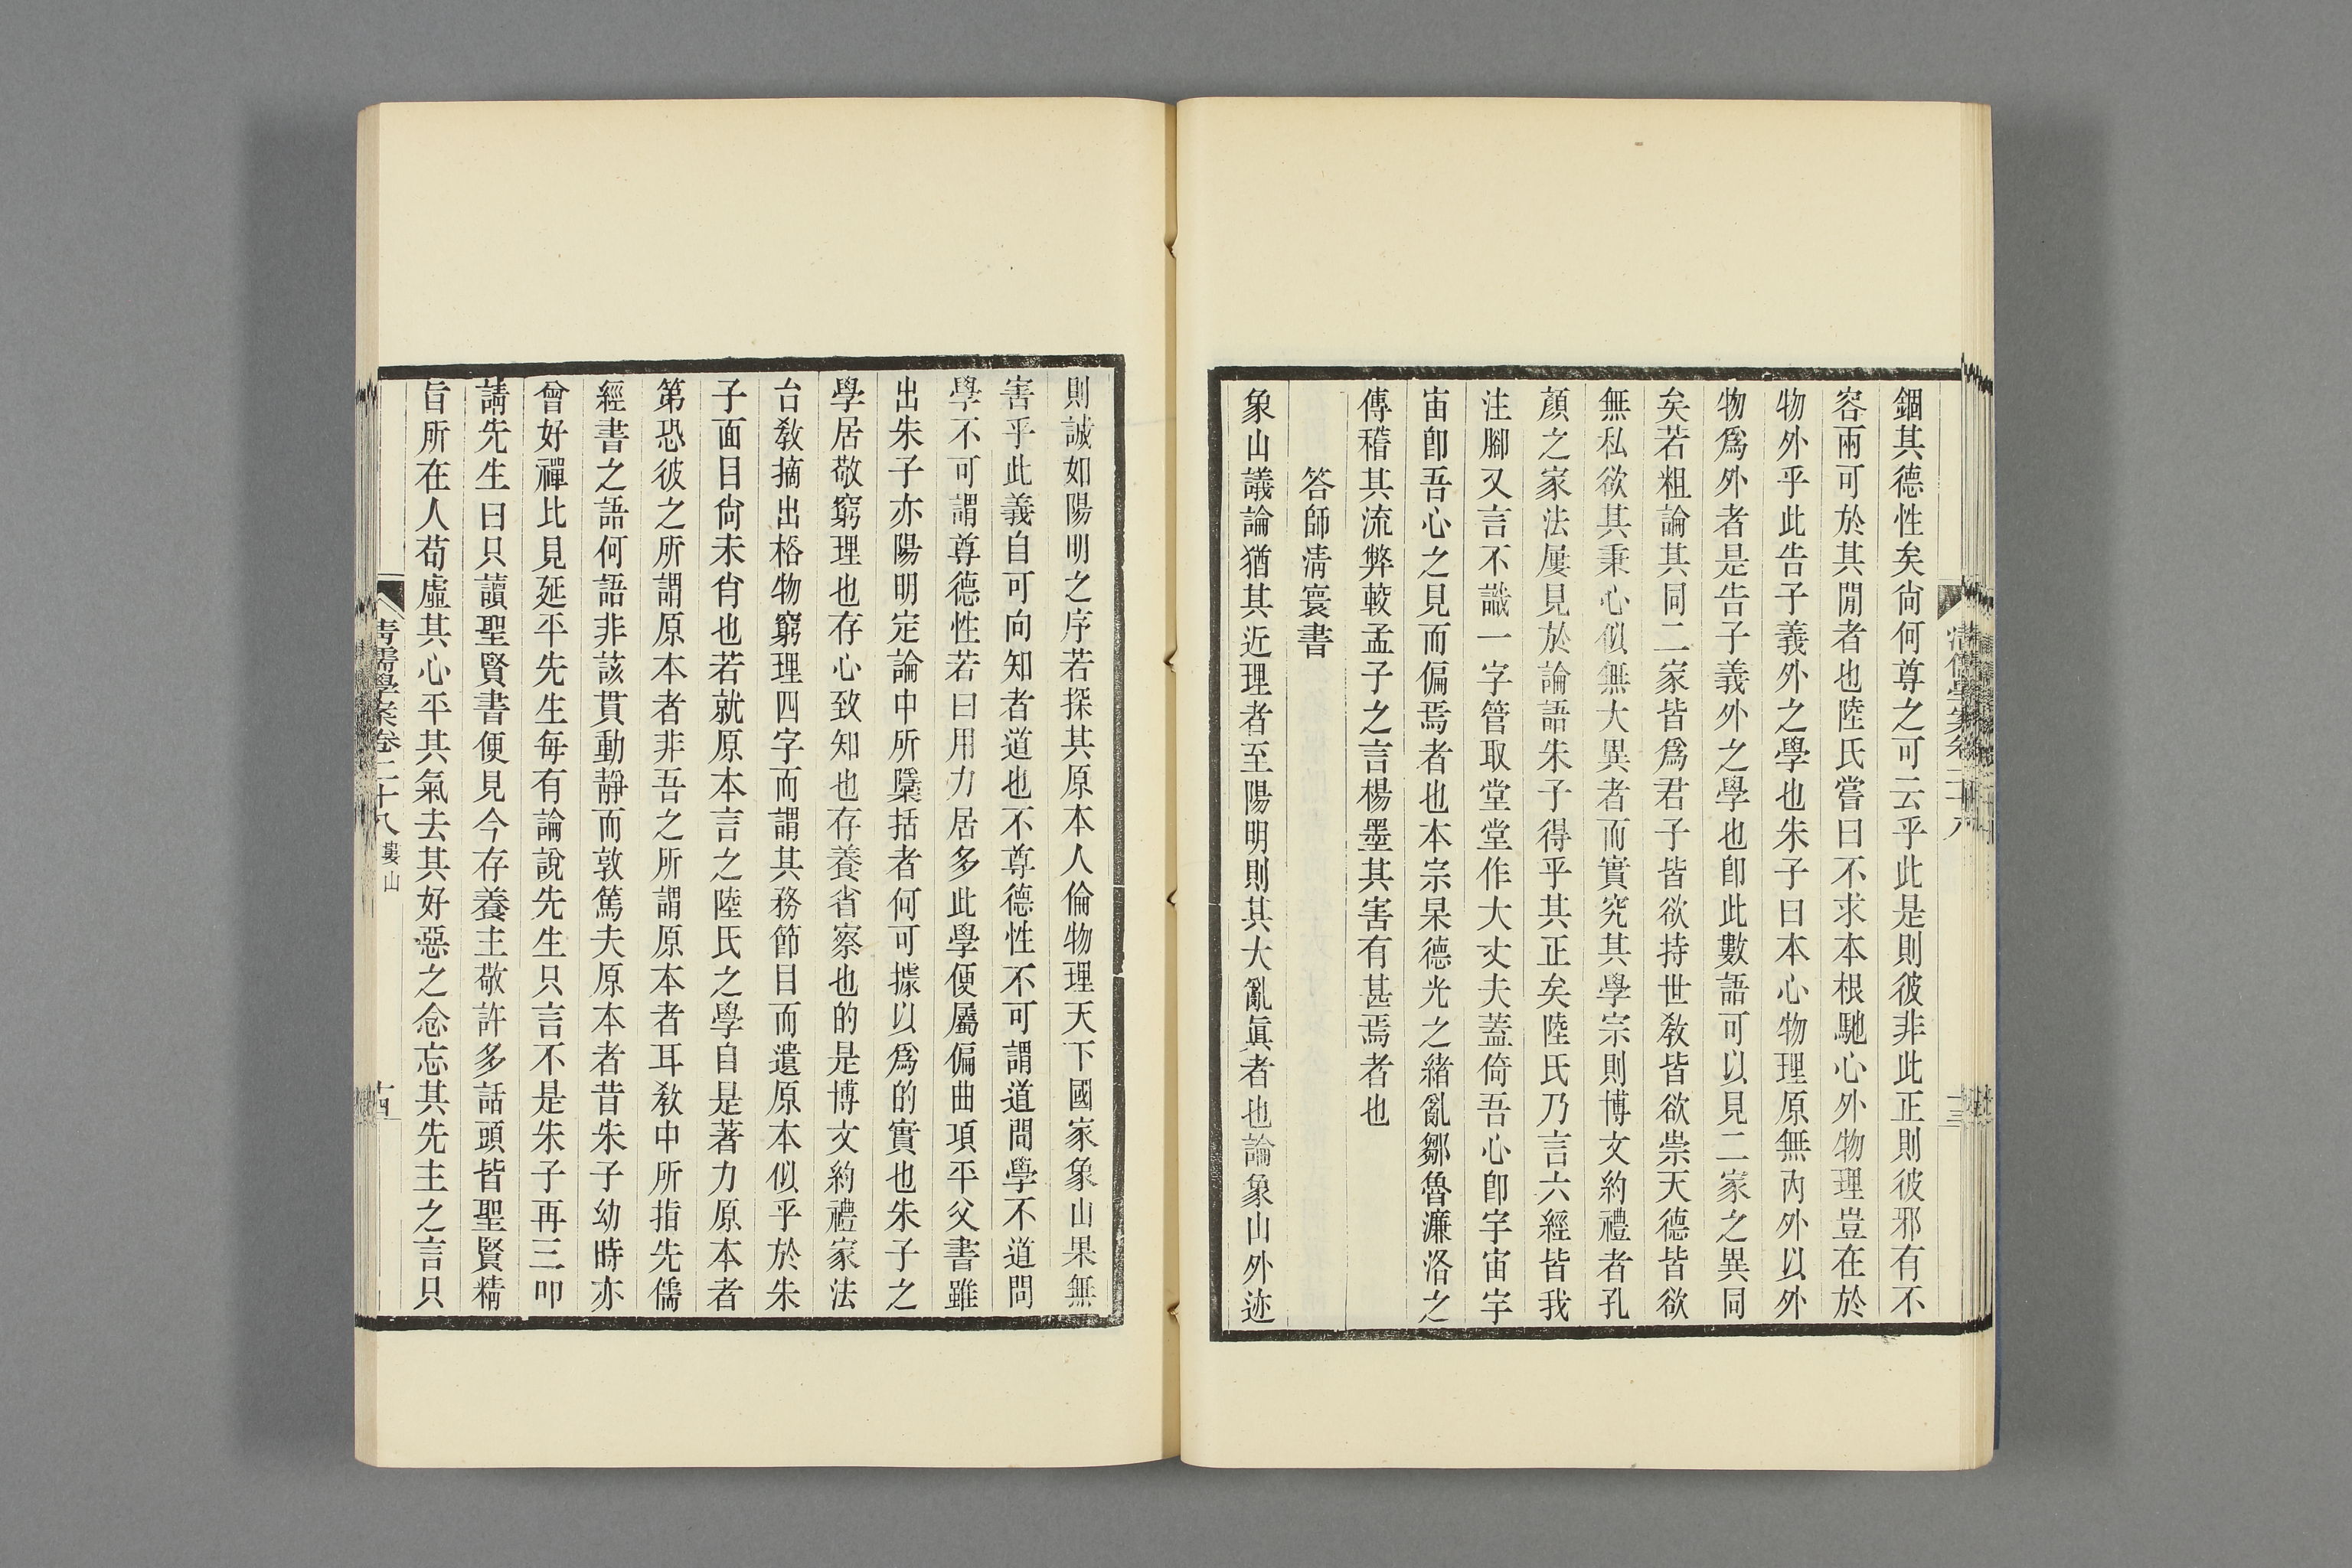 錮其德性矣尙何尊之可云乎此是則彼非此正則彼邪有不
容兩可於其閒者也陸氏嘗曰不求本根馳心外物理豈在於
物外乎此告子義外之學也朱子曰本心物理原無內外以外
物爲外者是告子義外之學也卽此數語可以見二家之異同
矣若粗論其同二家皆爲君子皆欲持世敎皆欲崇天德皆欲
無私欲其秉心似無大異者而實究其學宗則博文約禮者孔
顏之家法屢見於論語朱子得乎其正矣陸氏乃言六經皆我
注腳又言不識一字管取堂堂作大丈夫蓋倚吾心卽宇宙宇
宙卽吾心之見而偏焉者也本宗杲德光之緒亂鄒魯濂洛之
傳稽其流弊較孟子之言楊墨其害有甚焉者也
答師淸寰書
象山議論猶其近理者至陽明則其大亂眞者也論象山外迹
淸儒學案卷二十八
十三
則誠如陽明之序若探其原本人倫物理天下國家象山果無
害乎此義自可向知者道也不尊德性不可謂道問學不道問
學不可謂尊德性若曰用力居多此學便屬偏曲項平父書雖
出朱子亦陽明定論中所檃括者何可據以爲的實也朱子之
學居敬窮理也存心致知也存養省察也的是博文約禮家法
台敎摘出格物窮理四字而謂其務節目而遺原本似乎於朱
子面目尙未肖也若就原本言之陸氏之學自是著力原本者
第恐彼之所謂原本者非吾之所謂原本者耳敎中所指先儒
經書之語何語非該貫動靜而敦篤夫原本者昔朱子幼時亦
曾好禪比見延平先生每有論說先生只言不是朱子再三叩
請先生曰只讀聖賢書便見今存養主敬許多話頭皆聖賢精
旨所在人苟虛其心平其氣去其好惡之念忘其先主之言只
淸儒學案卷二十八 婁山
十四